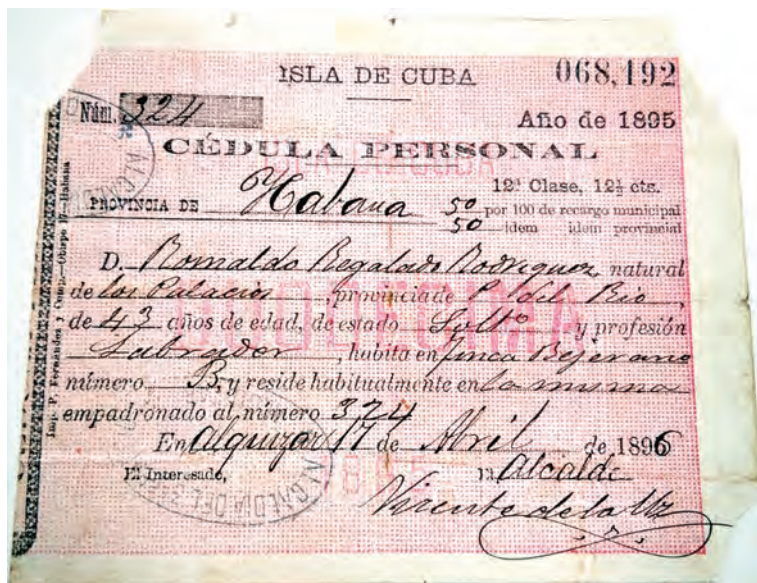 ISLA DE CUBA
068,192
Núm. 324
Año de 1895
CÉDULA PERSONAL
12ª Clase, 12½ cts.
PROVINCIA DE Habana 50 por 100 de recargo municipal
50 idem idem provincial
D. Romaldo Regalado Rodriguez, natural
de los Palacios, provincia de P. del Rio,
de 43 años de edad, de estado Solto y profesión
Labrador, habita en finca Bejerano
número B, y reside habitualmente en la misma
empadronado al número 324
En Alquizar 17 de Abril de 1896
El Interesado,
El Alcalde
Vicente de la
DUODECIMA
1895
Imp. P. Fernández y Comp.—Obispo 17—Habana
ALCALDIA DEL
ALCALDIA